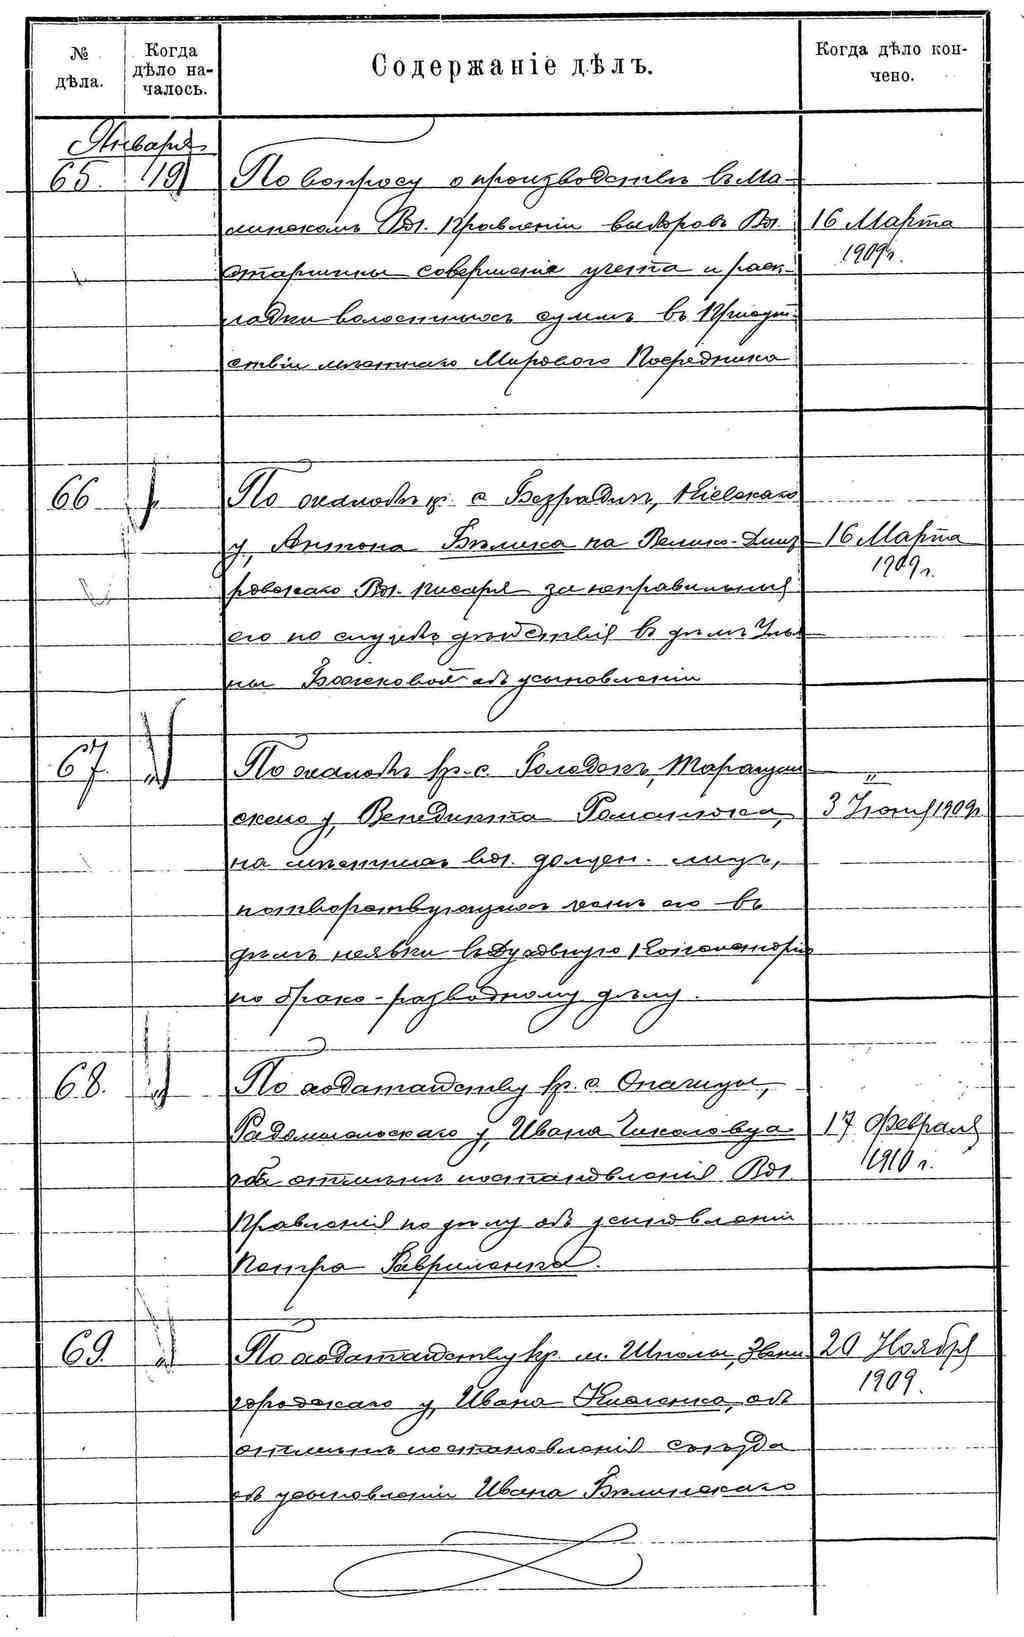 № дѣла.
Когда дѣло на-
чалось.
Содержаніе дѣлъ.
Когда дѣло кон-
чено.
Января
65. 19
По вопросу о производствѣ въ Ма-
линскомъ Вол. Правленіи выборовъ Вол.
старшины совершенія учета и раск-
ладки волостныхъ суммъ въ присут-
ствіи мѣстнаго Мирового Посредника
16 Марта
1909 г.
66 "
По жалобѣ кр. с. Безрадичъ, Кіевскаго
у, Антона Бѣлика на Велико-Дмит
ровскаго Вол. писаря за неправильныя
его по службѣ дѣйствія въ дѣлѣ Улья
ны Боженовой объ усыновленіи
16 Марта
1909 г.
67. "
По жалобѣ кр. с. Голодокъ, Таращан
скаго у, Венедикта Романюка,
на мѣстныхъ вол. должн. лицъ,
потворствующихъ женѣ его въ
дѣлѣ неявки въ Духовную Консисторію
по брако-разводному дѣлу.
3 Іюня 1909 г.
68. "
По ходатайству кр. с. Опачицы,
Радомысльскаго у, Ивана
объ отмѣнѣ постановленія Вол.
Правленія по дѣлу объ усыновленіи
Петра Гавриленка.
17 Февраля
1910 г.
69. "
По ходатайству кр. м. Шполы, Звени
городскаго у, Ивана объ
отмѣнѣ постановленія съѣзда
объ усыновленіи Ивана Бѣлинскаго
20 Ноября
1909.